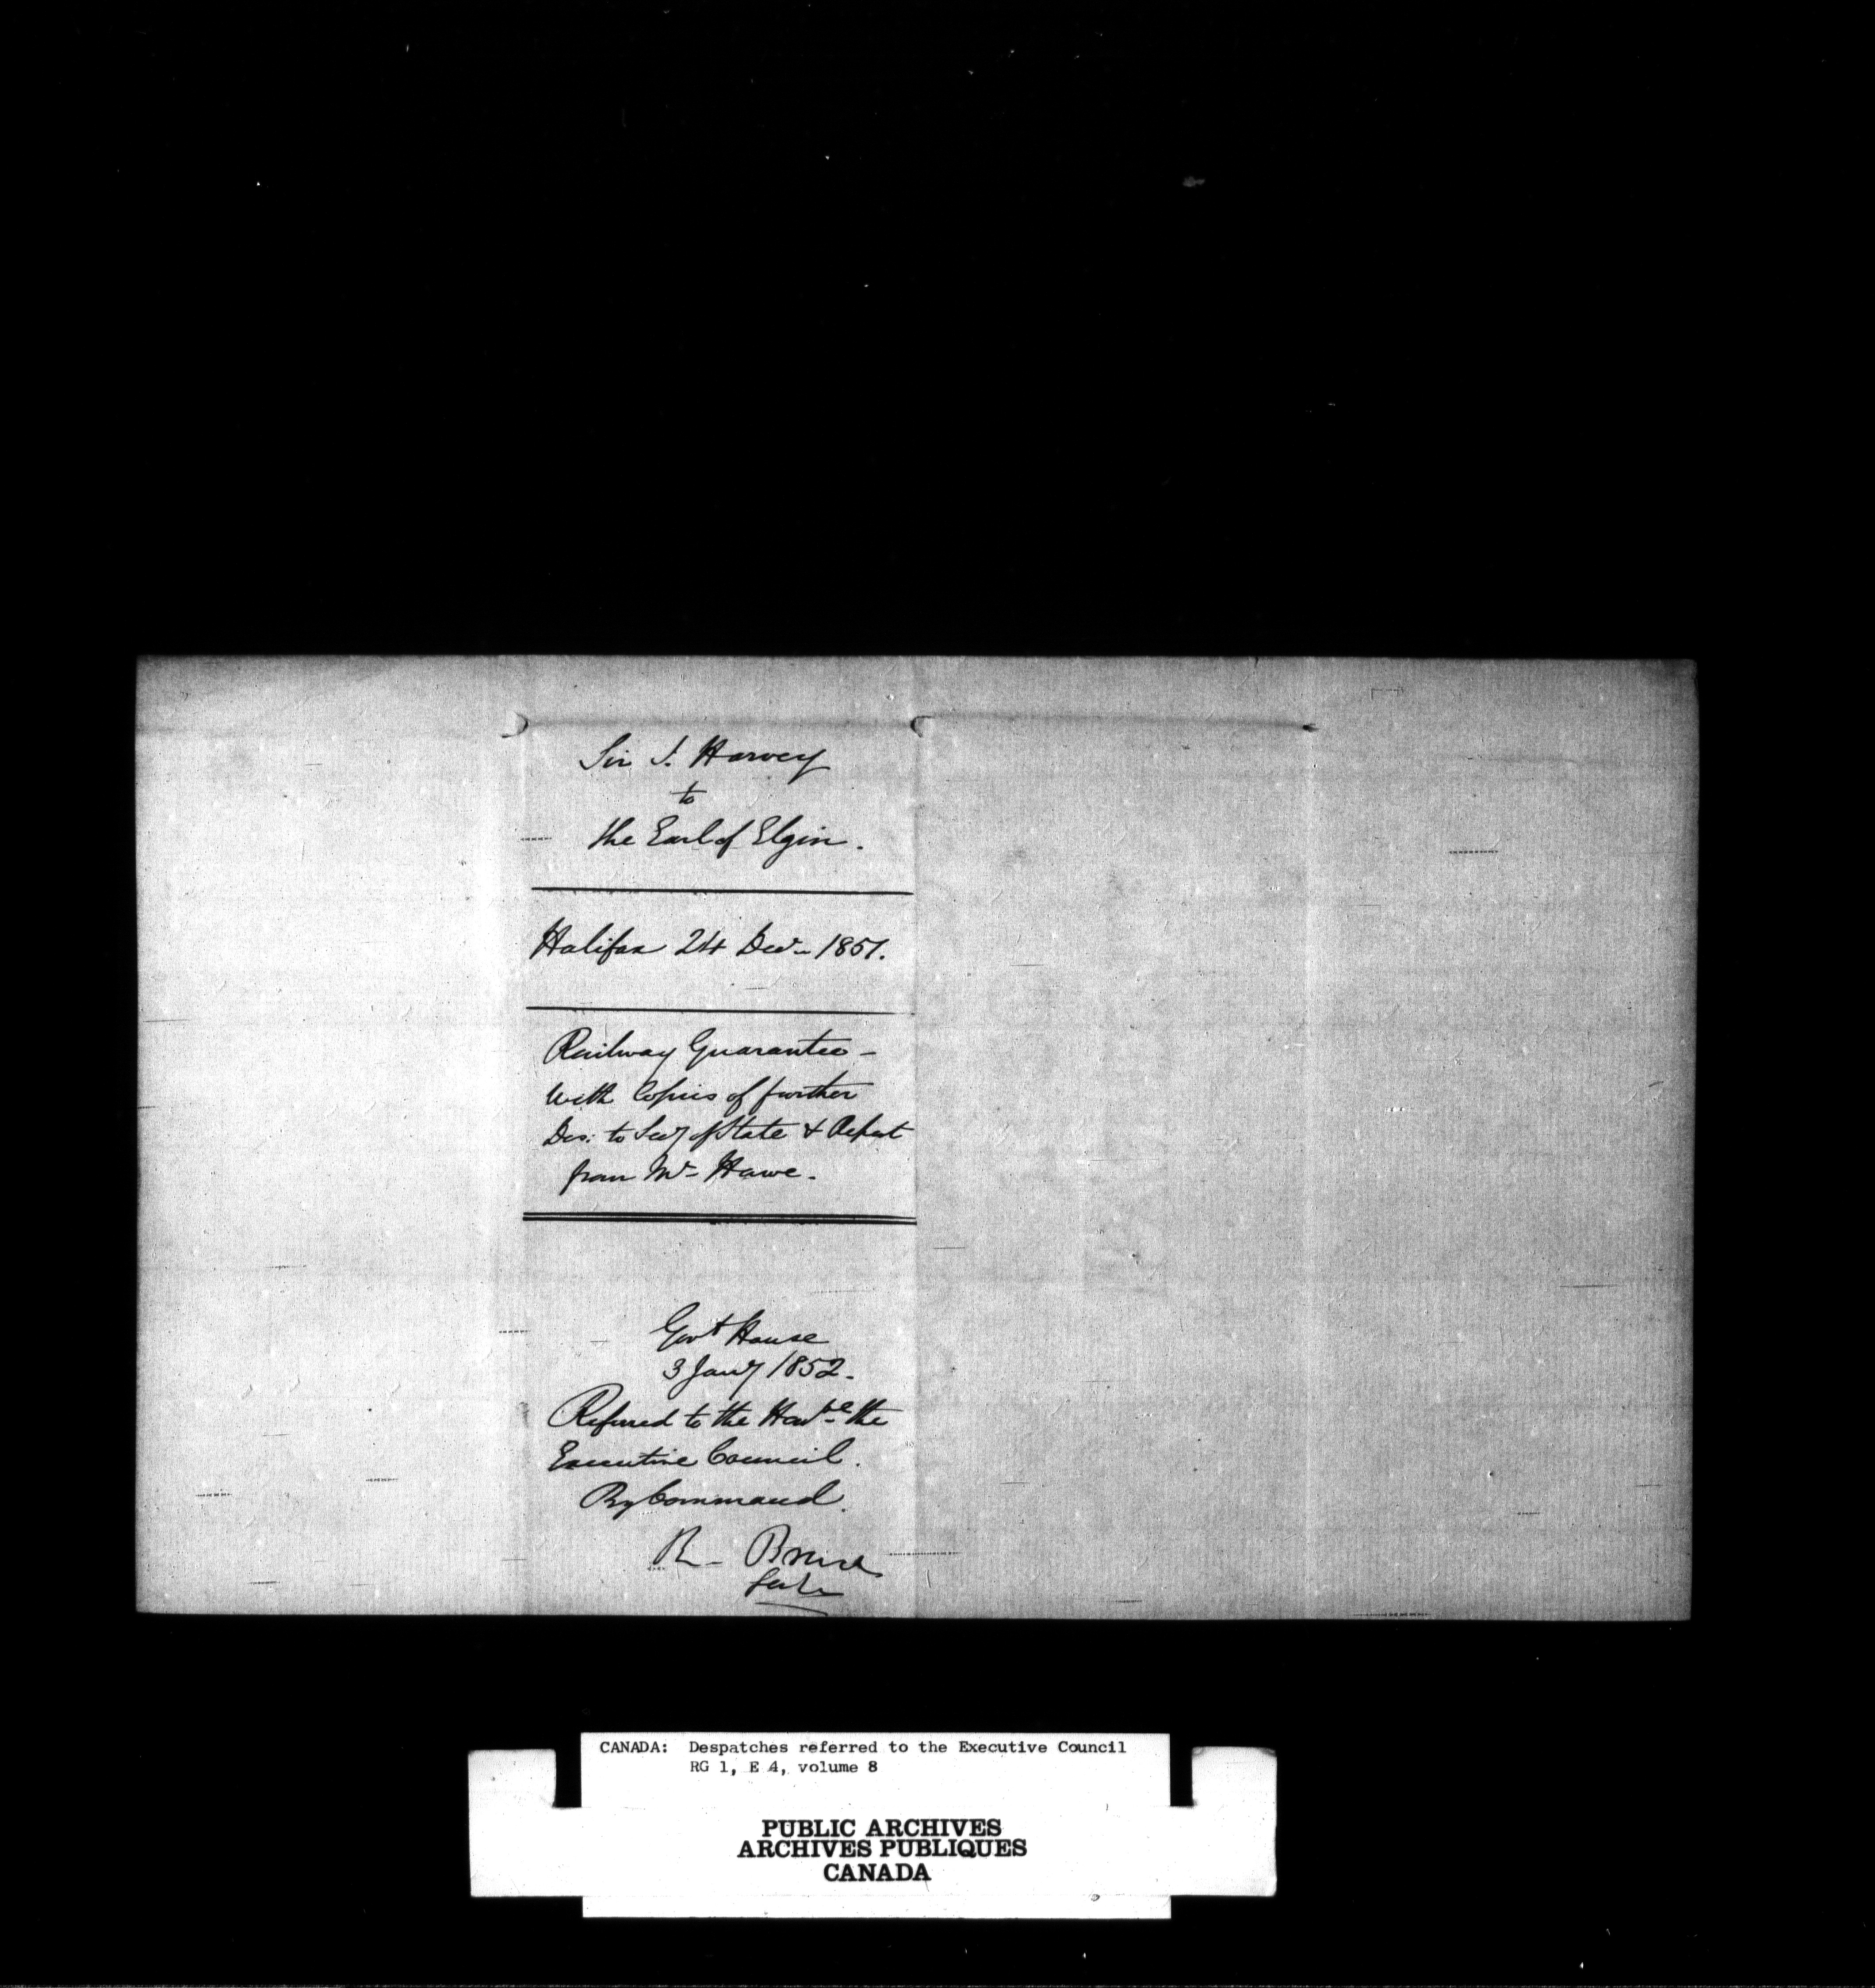 Sir J. Harvey
to
the Earl of Elgin.
Halifax 24 Decr 1851.
Railway Guarantee -
With Copies of further
Des: to Secy of State & Report
from Mr Howe.
Govt House
3 Jany 1852.
Referred to the Honble the
Executive Council.
By Command.
R. Bruce
CANADA: Despatches referred to the Executive Council
RG 1, E 4, volume 8
PUBLIC ARCHIVES
ARCHIVES PUBLIQUES
CANADA